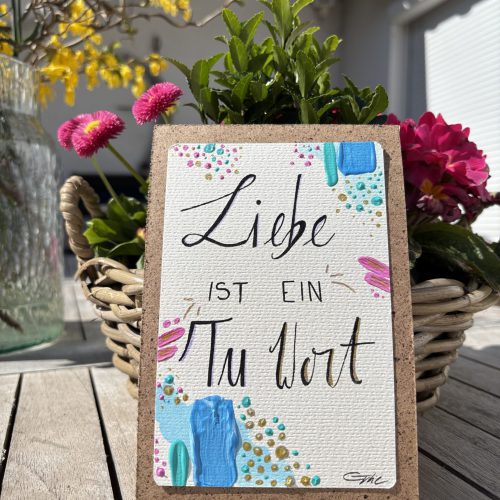 Liebe
IST EIN
Tu Wort